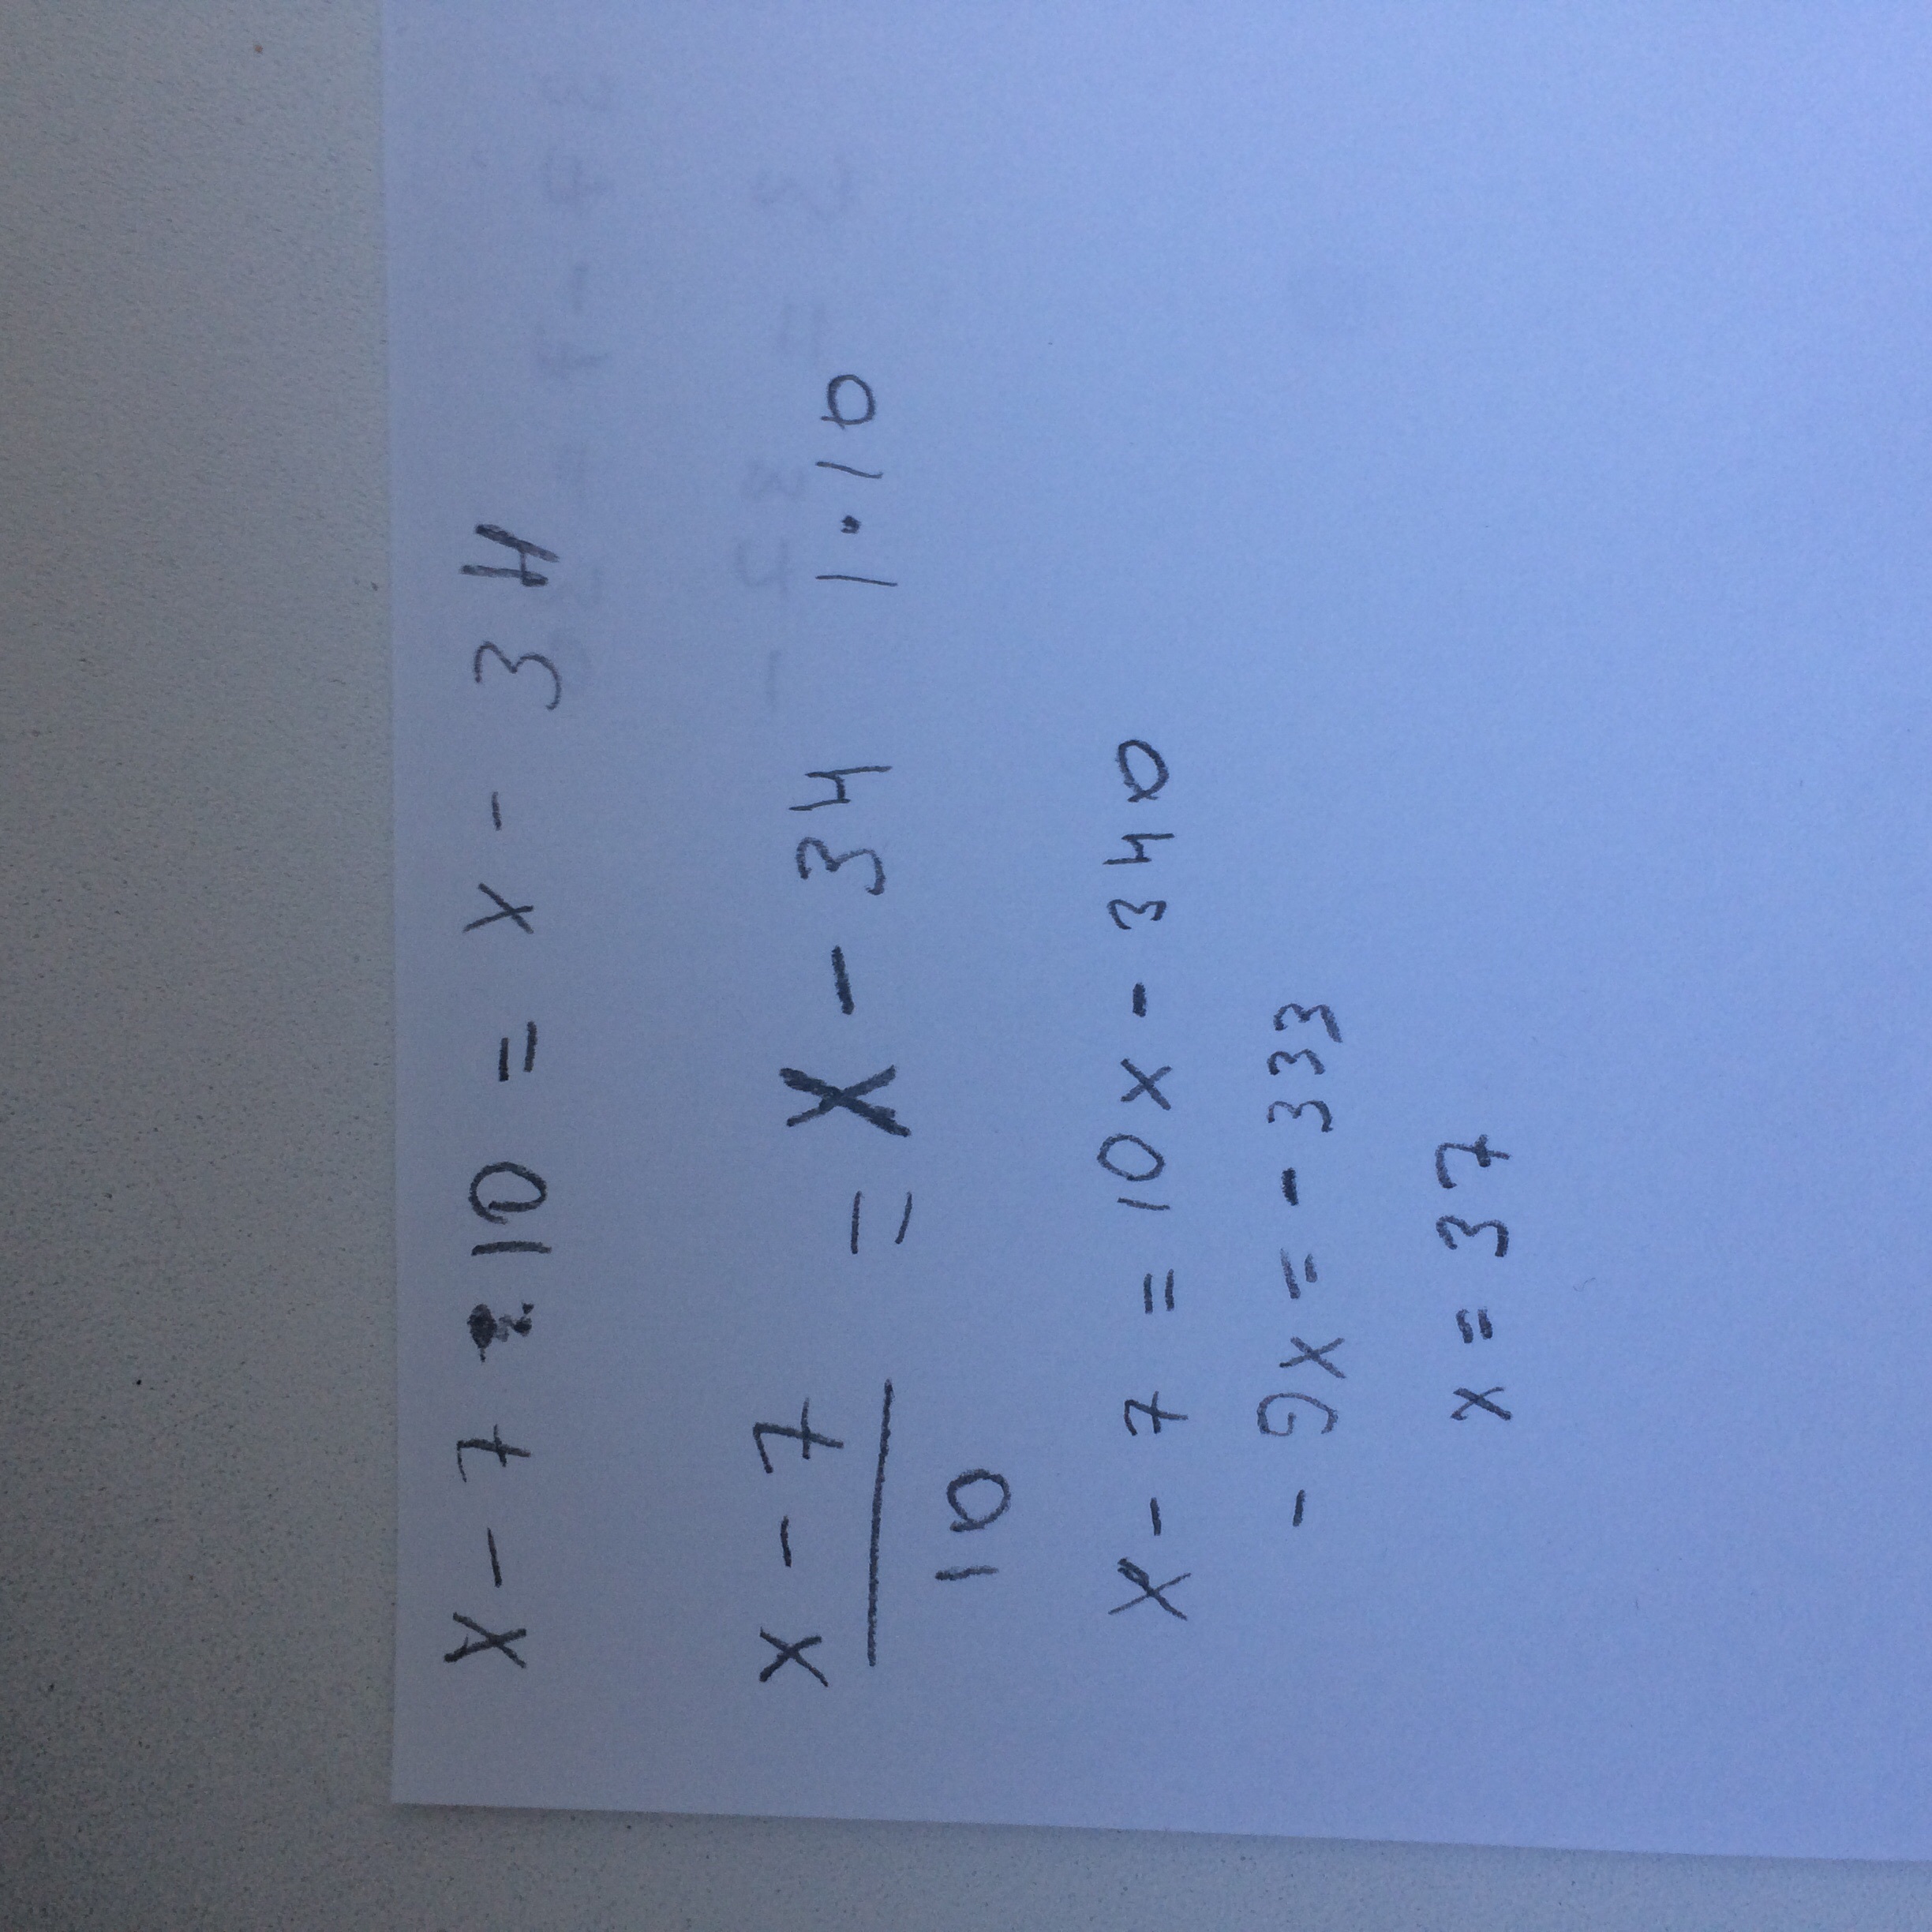 x - 7 : 10 = x - 34
x - 7 = x - 34 | · 10
10
x - 7 = 10x - 340
- 9x = - 333
x = 37